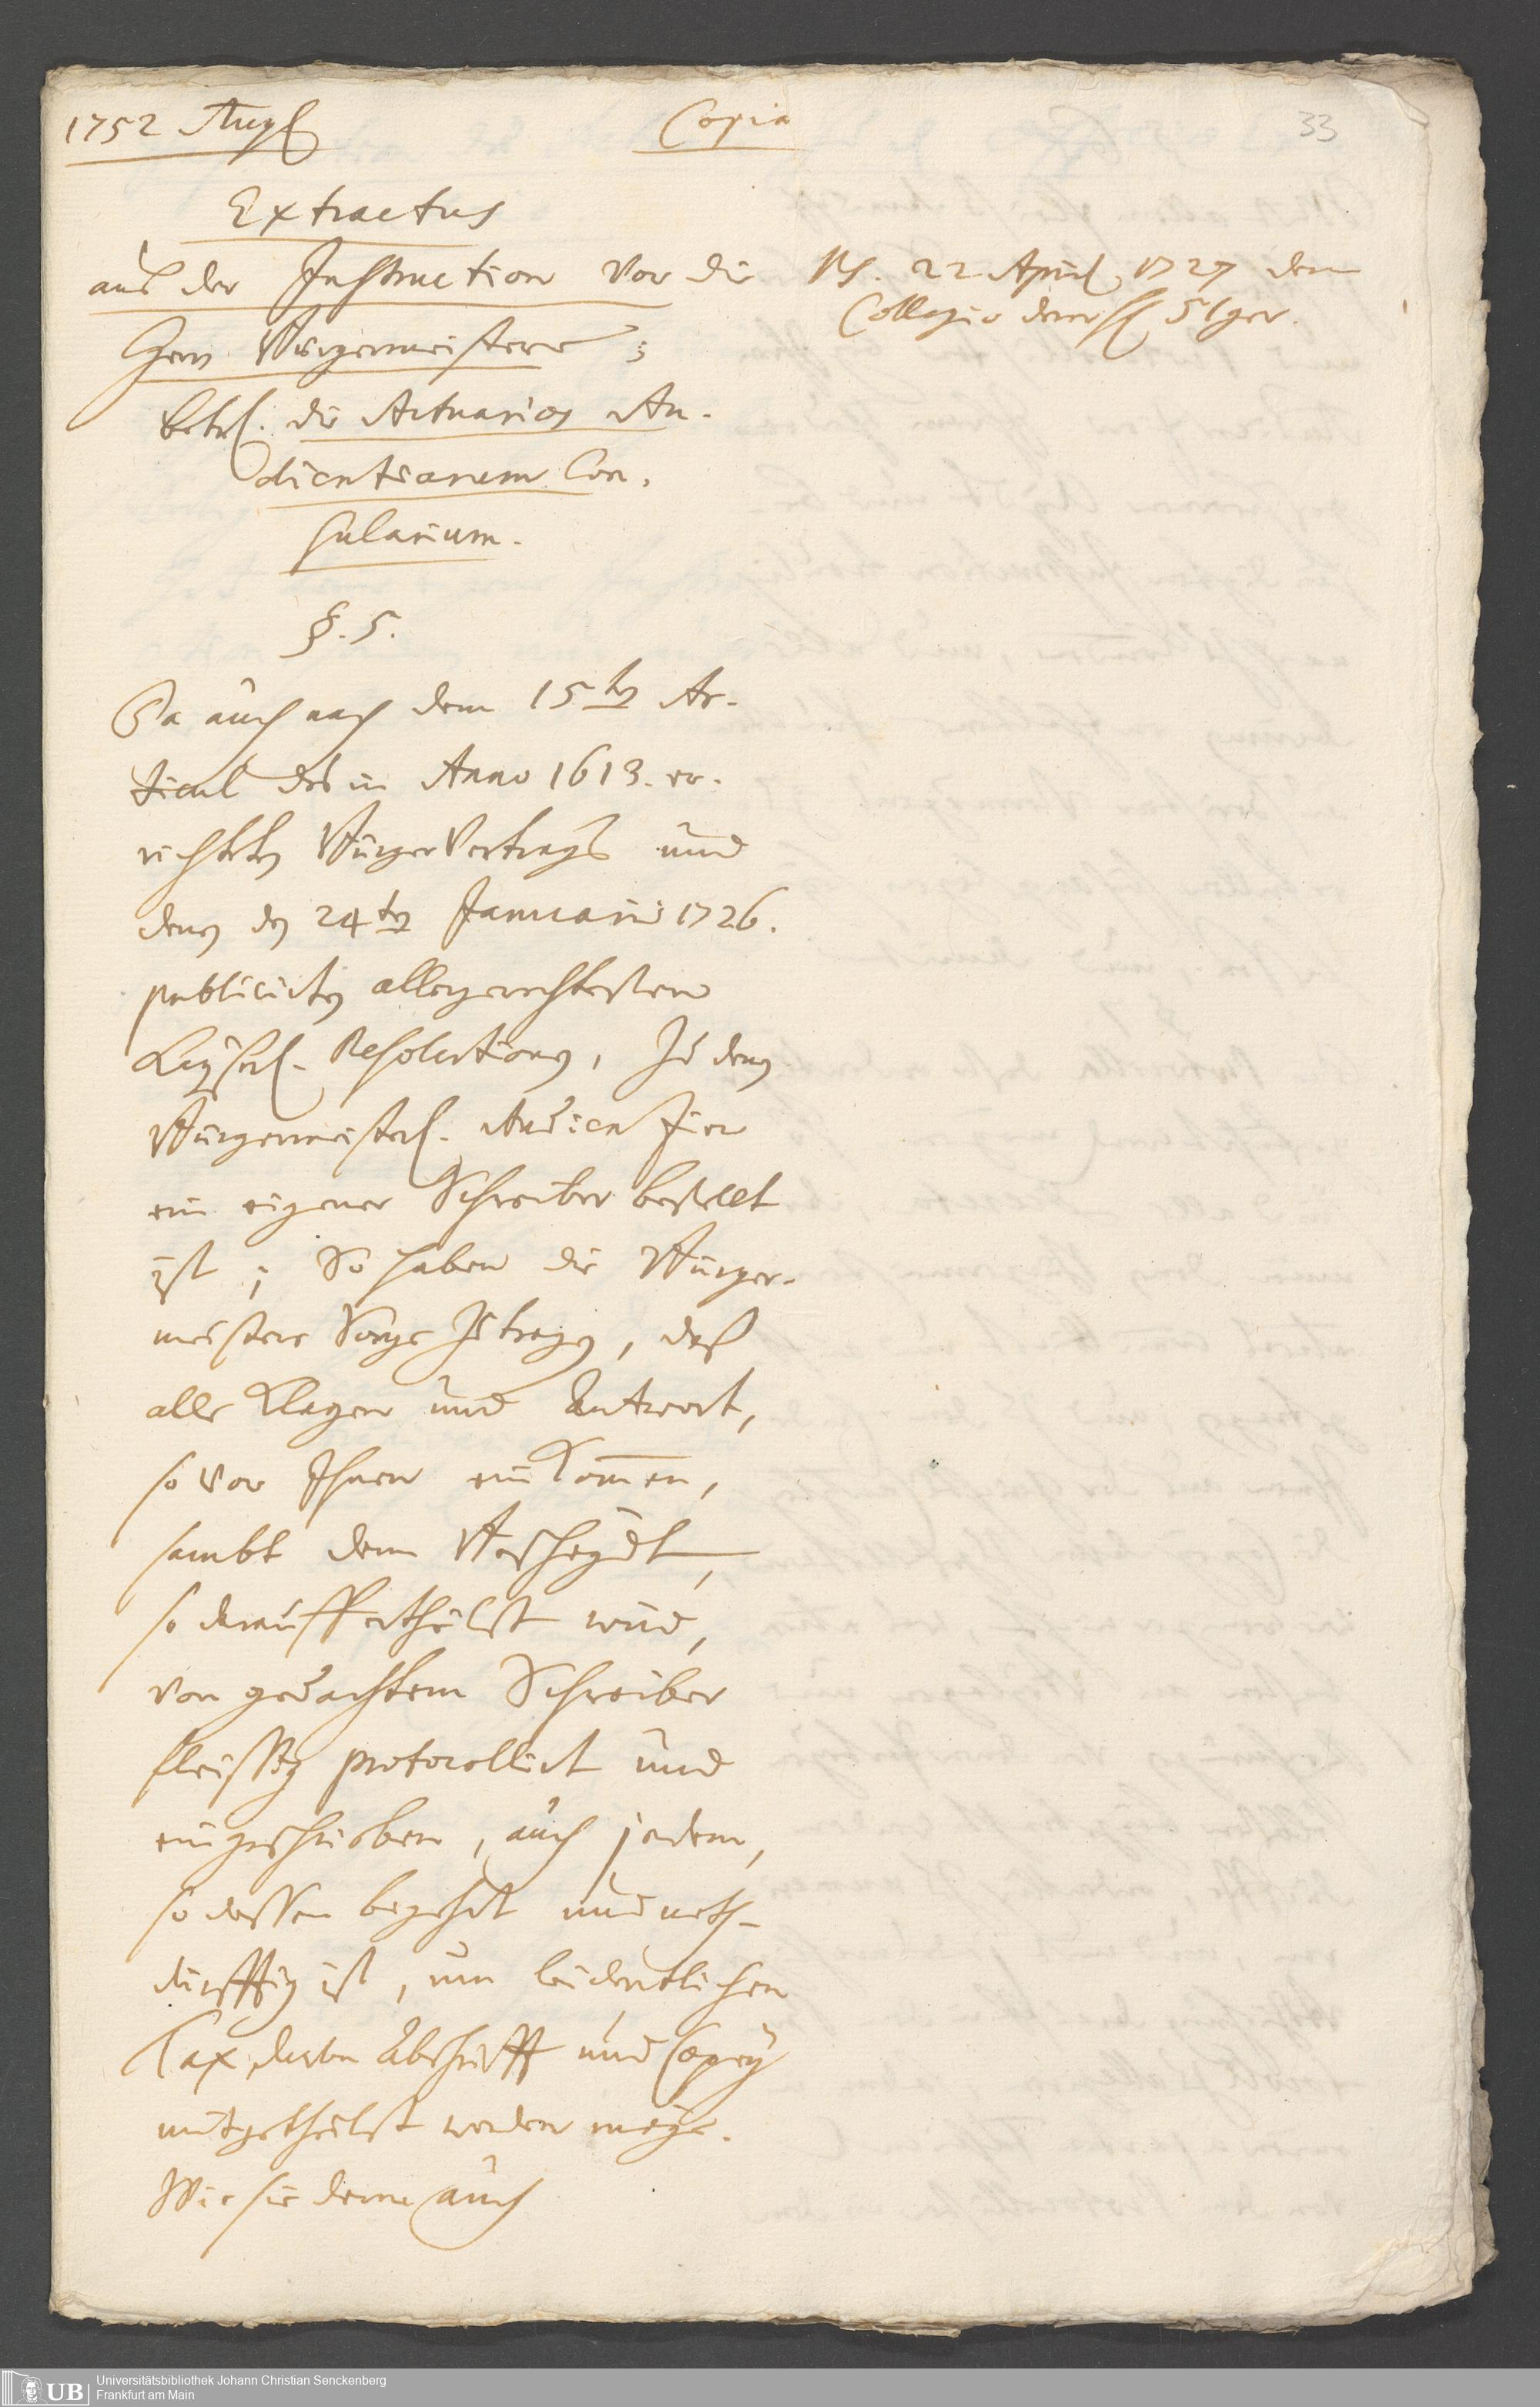 1752 Aug
Copia
33
Extractus
aus der Instruction vor die
Herrn Bürgermeistere;
betrl. die Actuarios Au-
dientiarum Con-
sularium.
Ps. 22 April 1727 dem
Collegio derer H. 51ger.
§. 5.
Da auch nach dem 15ten Ar-
ticul des in Anno 1613. er-
richteten Bürger Vertrags und
denen den 24ten Januarii 1726.
publicirten allergerechtesten
Kayserl. Resolutionen, zu denen
Bürgermeisterl. Audientien
ein eigener Schreiber bestellt
ist; So haben die Bürger-
meistere Sorge zu tragen, daß
alle Klagen und Antwort,
so vor Ihnen einkom̄en,
sambt dem Bescheydt,
so darauff ertheilet wird,
von gedachtem Schreiber
fleissig protocollirt und
eingeschrieben, auch jedem,
so dessen begehrt und noth-
dürfftig ist, um leidentlichen
Tax, davon Abschrifft und Copey
mitgetheilet werden möge.
Wie sie denn auch
Universitätsbibliothek Johann Christian Senckenberg
Frankfurt am Main
UB